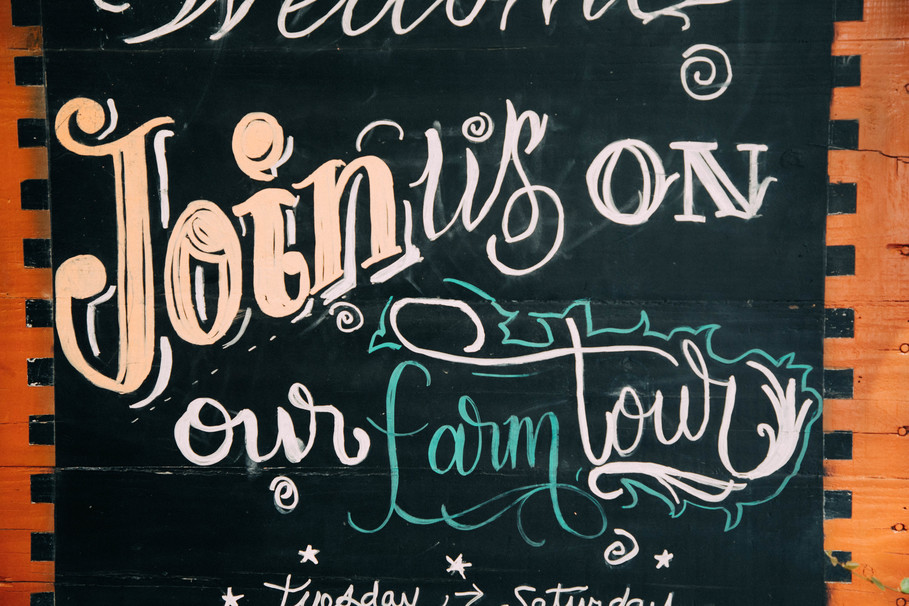 Welcome
Join us ON
our farm tour
Tuesday → Saturday